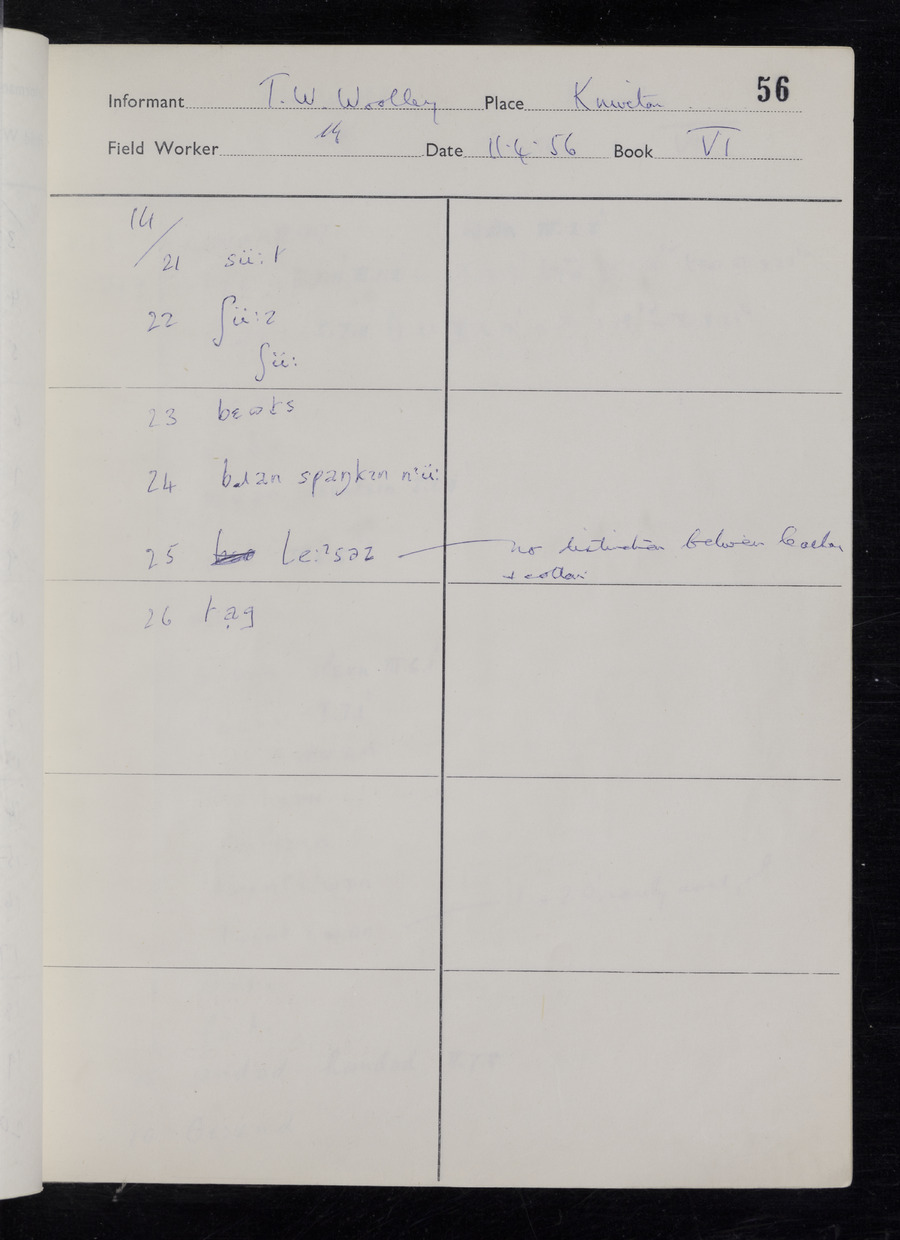 56
Informant T. W. Woolley Place Kniveton
Field Worker Date 11·4·56 Book VI
14/
21 sü:t
22 ʃü:z
ʃü:
23 bɛωts
24 spaŋkɪn nü:
25 le:ʔsəz no distinction between leather
+ cotton
26 tag